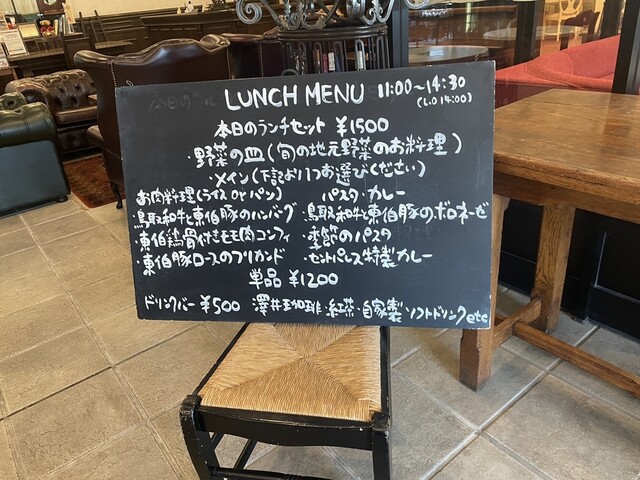 LUNCH MENU 11:00~14:30
(L.O 14:00)
本日のランチセット ¥1500
・野菜の皿(旬の地元野菜のお料理)
・メイン(下記より1つお選びください)
お肉料理(ライス or パン)
・鳥取和牛と東伯豚のハンバーグ
・東伯鶏骨付きモモ肉コンフィ
・東伯豚ロースのフリカンド
パスタ・カレー
・鳥取和牛と東伯豚のボロネーゼ
・季節のパスタ
・セントパレス特製カレー
単品 ¥1200
ドリンクバー ¥500 澤井珈琲・紅茶・自家製・ソフトドリンクetc